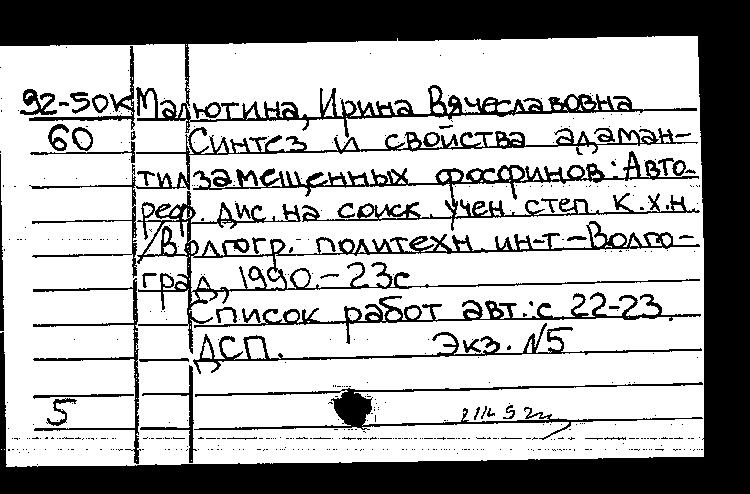 92-50К Малютина, Ирина Вячеславовна
60 Синтез и свойства адаман-
тилзамещенных фосфинов: Авто-
реф. дис. на соиск. учен. степ. к.х.н.
/Волгогр. политехн. ин-т-Волго-
град, 1990.-23с.
Список работ авт.: с. 22-23.
ДСП. Экз. №5
5